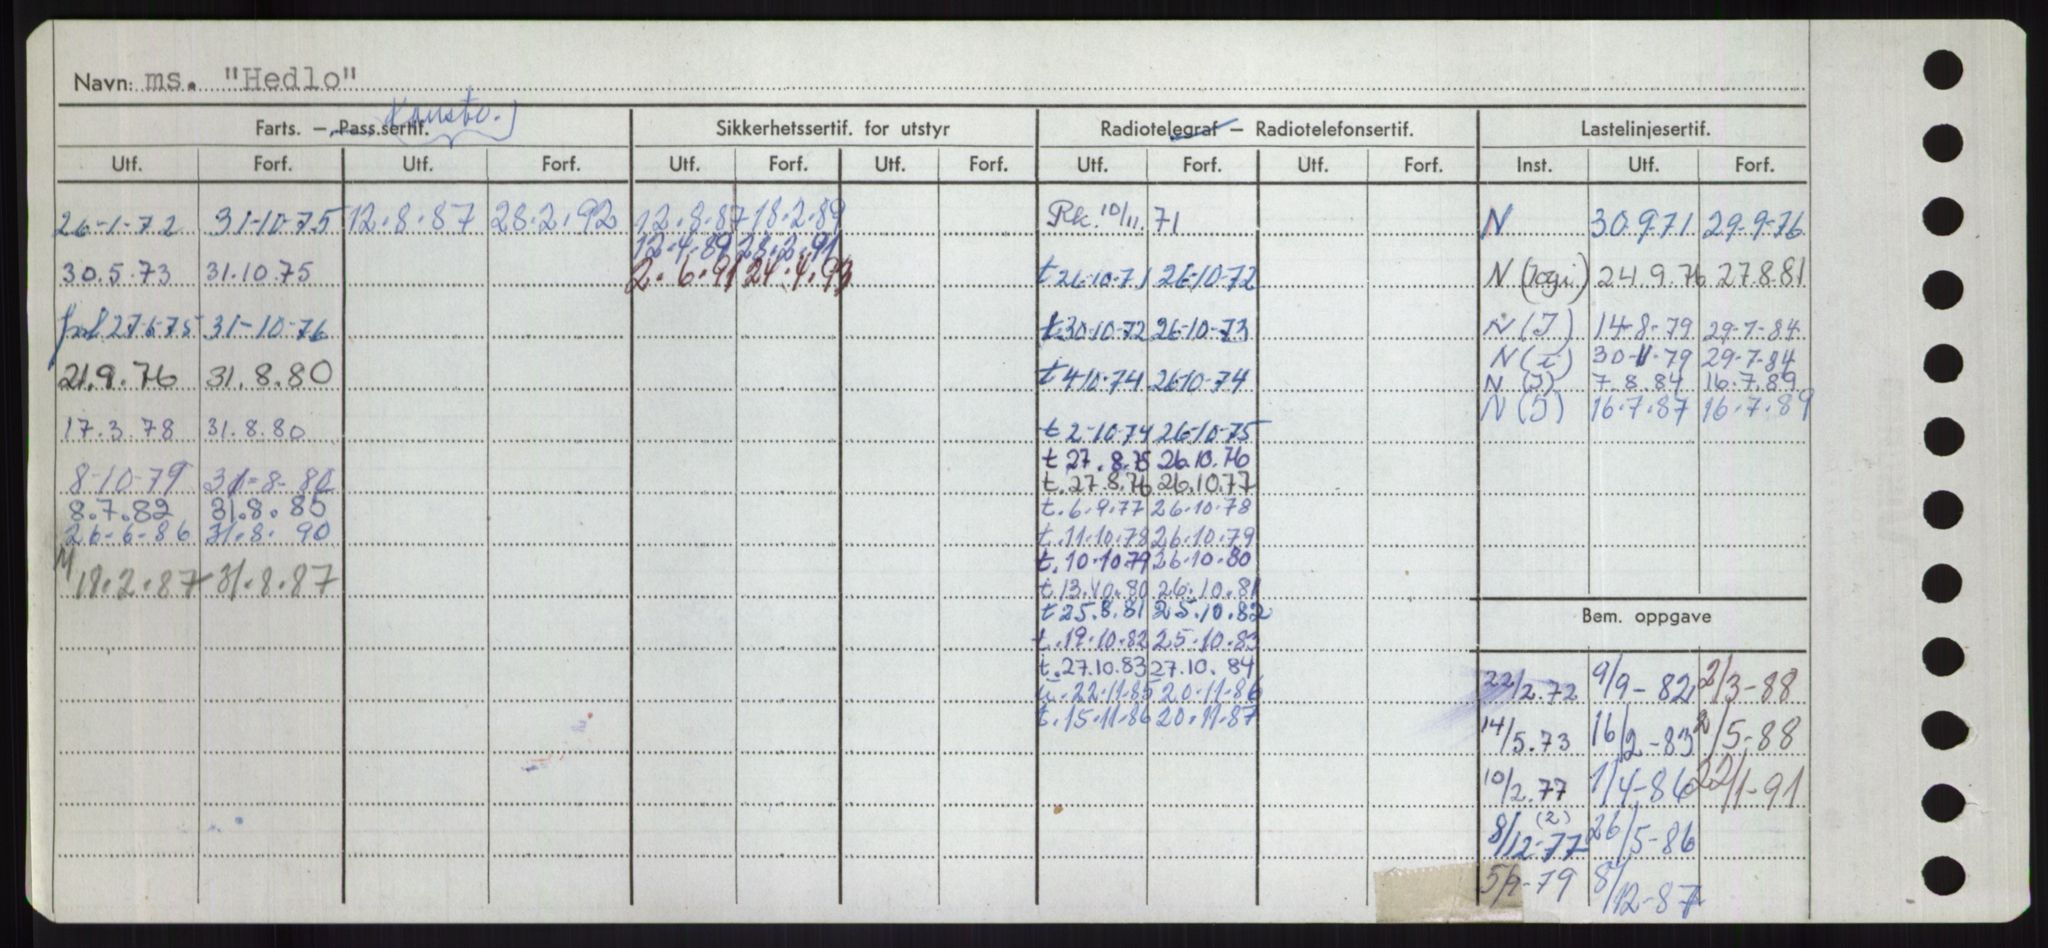 Navn: ms. "Hedlo"
Konstr.
Farts. – Pass.sertif. Sikkerhetssertif. for utstyr Radiotelegraf – Radiotelefonsertif. Lastelinjesertif.
Utf. Forf. Utf. Forf. Utf. Forf. Utf. Forf. Utf. Forf. Utf. Forf. Inst. Utf. Forf.
26-1-72 31-10-75 12.8.87 28.2.92 12.8.87 18.2.89 Rk. 10/11.71 N 30.9.71 29-9-76
12.4.89 28.2.91
30.5.73 31.10.75 2.6.91 24.4.93 t 26-10-71 26-10-72 N 24.9.76 27.8.81
forl 27-6-75 31-10-76 t 30-10-72 26-10-73 N (I) 14-8-79 29-7-84
N (i) 30-11-79 29-7-84
21.9.76 31.8.80 t 4-10-74 26-10-74 N (I) 7.8.84 16.7.89
N (I) 16.7.87 16.7.89
17.3.78 31.8.80 t 2-10-74 26-10-75
t. 27.8.75 26.10.76
8-10-79 31-8-80 t. 27.8.76 26.10.77
8.7.82 31.8.85 t. 6.9.77 26.10.78
26-6-86 31.8.90 t. 11.10.78 26.10.79
t. 10.10.79 26.10.80
M 18.2.87 31.8.87 t. 13.10.80 26.10.81
t 25.8.81 25.10.82
Bem. oppgave
t. 19.10.82 25.10.83
t. 27.10.83 27.10.84
22/2.72 9/9-82 2/3-88
22-11-85 20-11-86
t. 15.11.86 20.11.87
14/5.73 16/2-83 2/5-88
10/2.77 1/4-86 22/1-91
8/12-77 (2) 26/5-86
79 8/12-87